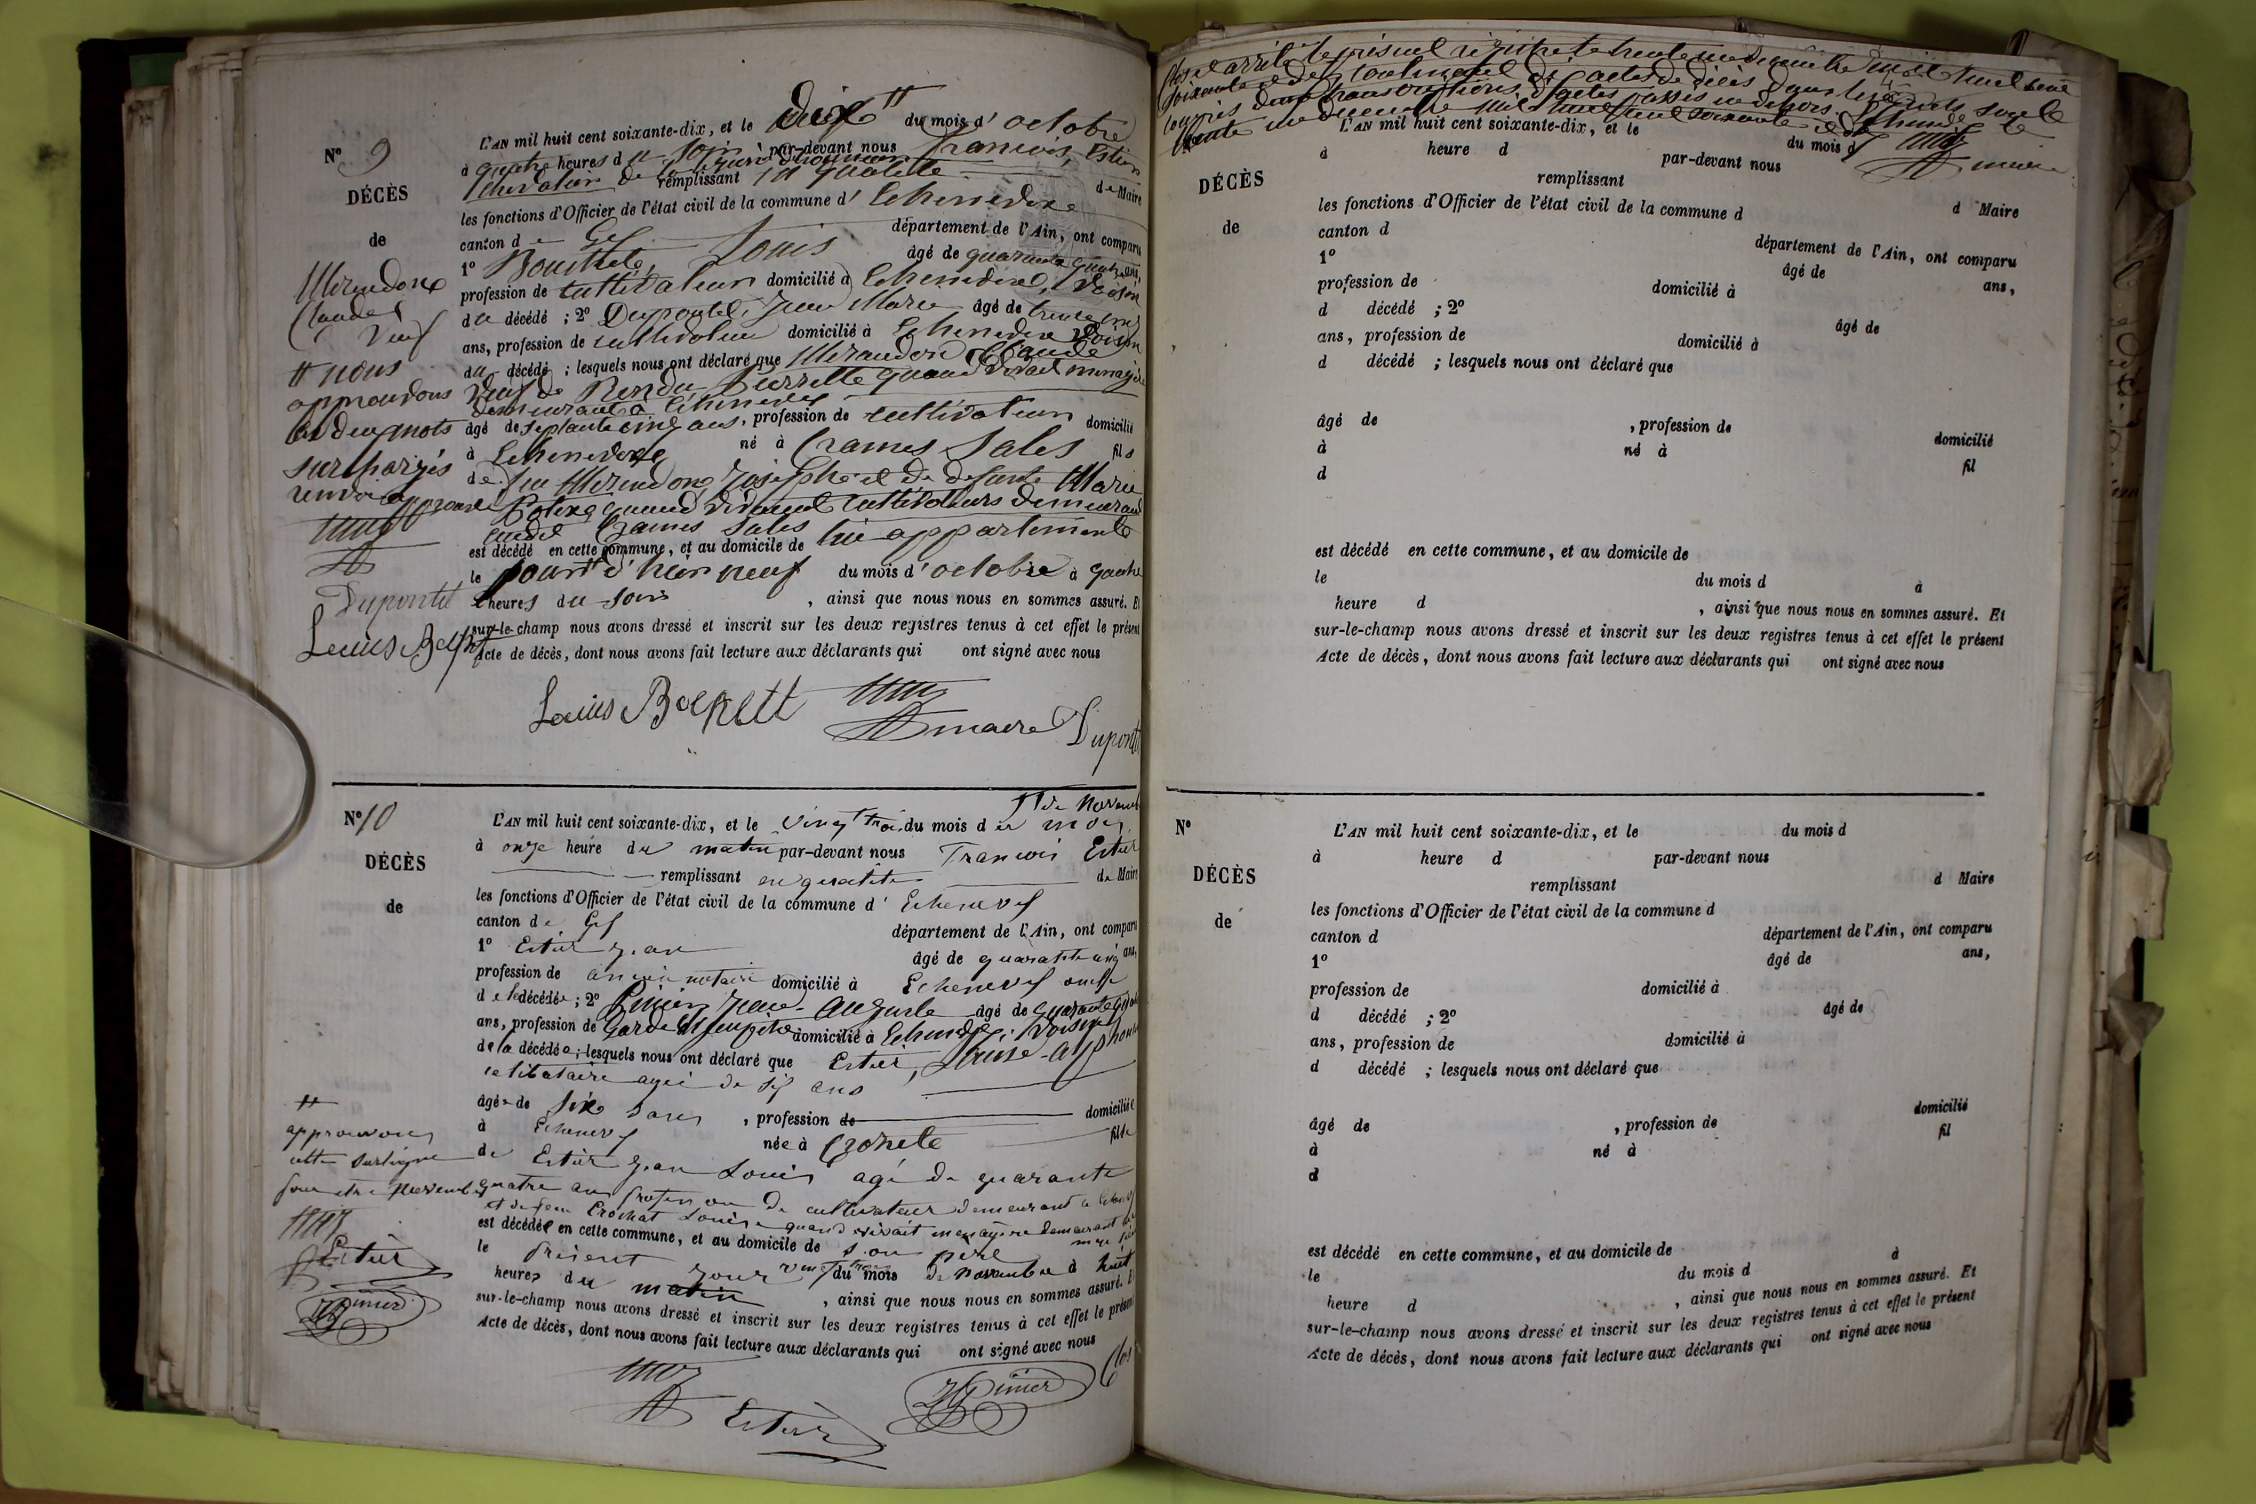 Nº 9
DÉCÈS
de
Claude
Veuf
# nous
approuvons
les deux mots
surchargés
renvoi approuvé
Dupontet
L'AN mil huit cent soixante-dix, et le dix # du mois d' octobre
à quatre heures du soir par-devant nous François Estier
Chevalier de la légion d'honneur remplissant en qualité de Maire
les fonctions d'Officier de l'état civil de la commune d' Echenevex
canton de Gex département de l'Ain, ont comparu
1º Louis âgé de quarante quatre ans,
profession de cultivateur domicilié à Echenevex, voisin
du décédé ; 2º Dupontet, Jean Marie âgé de trente
ans, profession de cultivateur domicilié à Echenevex voisin
du décédé ; lesquels nous ont déclaré que Claude
veuf de Pierrette quand vivait ménagère
demeurant à Echenevex
âgé de septante cinq ans, profession de cultivateur domicilié
à Echenevex né à Crames Sales fils
de feu Joseph et de défunte Marie
quand vivaient cultivateurs demeurant
audit Crames Sales
est décédé en cette commune, et au domicile de
le jour d'hier neuf du mois d' octobre à quatre
heures du soir , ainsi que nous nous en sommes assuré. Et
sur-le-champ nous avons dressé et inscrit sur les deux registres tenus à cet effet le présent
Acte de décès, dont nous avons fait lecture aux déclarants qui ont signé avec nous
Louis
maire Dupontet
Nº 10
DÉCÈS
de
#
approuvons
cette surligne
pour etre Novembre
Estier
# de Novembre
L'AN mil huit cent soixante-dix, et le vingt trois du mois du mois
à onze heure du matin par-devant nous François Estier
remplissant en qualité de Maire
les fonctions d'Officier de l'état civil de la commune d' Echenevex
canton de Gex département de l'Ain, ont comparu
1º Estier Jean âgé de quarante cinq ans,
profession de ancien notaire domicilié à Echenevex
de la décédée ; 2º Jean-Auguste âgé de quarante
ans, profession de Garde domicilié à Echenevex, voisin
de la décédée ; lesquels nous ont déclaré que Estier, Louise-Alphonsine
célibataire agée de six ans
âgée de six ans , profession de domiciliée
à Echenevex née à Crozet fille
de Estier Jean Louis agé de quarante
quatre ans profession de cultivateur demeurant à Echenevex
et de feue Crochat Louise quand vivait menagère demeurant
est décédée en cette commune, et au domicile de son père
le présent jour vingt trois du mois de Novembre à huit
heures du matin , ainsi que nous nous en sommes assuré. Et
sur-le-champ nous avons dressé et inscrit sur les deux registres tenus à cet effet le présent
Acte de décès, dont nous avons fait lecture aux déclarants qui ont signé avec nous
Estier
Clos et arrêté le présent registre le trente un décembre mil huit cent
soixante et dix contenant dix actes de décès
compris deux transcriptions d'actes passés en dehors. Echenevex le
trente un decembre mil huit cent soixante et dix
maire
DÉCÈS
de
L'AN mil huit cent soixante-dix, et le du mois d
à heure d par-devant nous
remplissant d Maire
les fonctions d'Officier de l'état civil de la commune d
canton d département de l'Ain, ont comparu
1º âgé de ans,
profession de domicilié à
d décédé ; 2º âgé de
ans, profession de domicilié à
d décédé ; lesquels nous ont déclaré que
âgé de , profession de domicilié
à né à fil
d
est décédé en cette commune, et au domicile de
le du mois d à
heure d , ainsi que nous nous en sommes assuré. Et
sur-le-champ nous avons dressé et inscrit sur les deux registres tenus à cet effet le présent
Acte de décès, dont nous avons fait lecture aux déclarants qui ont signé avec nous
Nº
DÉCÈS
de
L'AN mil huit cent soixante-dix, et le du mois d
à heure d par-devant nous
remplissant d Maire
les fonctions d'Officier de l'état civil de la commune d
canton d département de l'Ain, ont comparu
1º âgé de ans,
profession de domicilié à
d décédé ; 2º âgé de
ans, profession de domicilié à
d décédé ; lesquels nous ont déclaré que
âgé de , profession de domicilié
à né à fil
d
est décédé en cette commune, et au domicile de
le du mois d à
heure d , ainsi que nous nous en sommes assuré. Et
sur-le-champ nous avons dressé et inscrit sur les deux registres tenus à cet effet le présent
Acte de décès, dont nous avons fait lecture aux déclarants qui ont signé avec nous